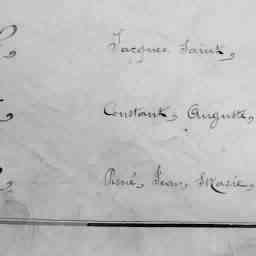 Jacques Saint,
Constant, Auguste,
René, Jean, Marie,